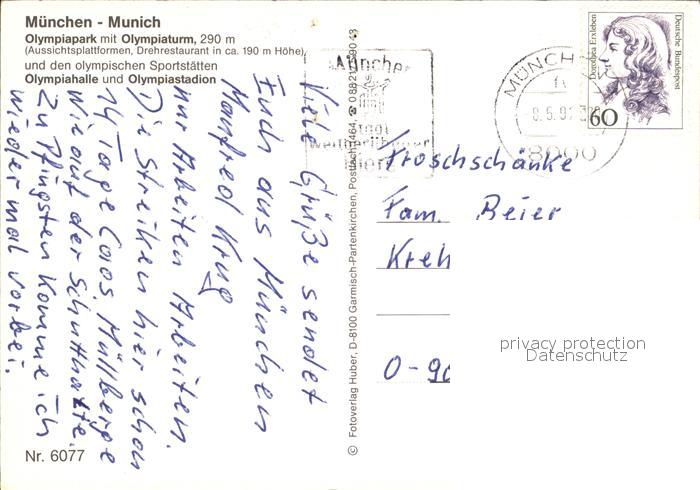 München - Munich
Olympiapark mit Olympiaturm, 290 m
(Aussichtsplattformen, Drehrestaurant in ca. 190 m Höhe),
und den olympischen Sportstätten
Olympiahalle und Olympiastadion
Viele Grüße sendet
Euch aus München
Manfred Krug
nur Arbeiten Arbeiten.
Die Streiken hier schon
14 Tage Caos Müllberge
wie auf der Schutthalte.
Zu Pfingsten komme ich
wieder mal vorbei.
Nr. 6077
© Fotoverlag Huber, D-8100 Garmisch-Partenkirchen, Postfach
München
Stadt
MÜNCH
8000
Dorothea Erxleben
Deutsche Bundespost
60
Froschschänke
Fam. Beier
Kreh
O-90
privacy protection
Datenschutz